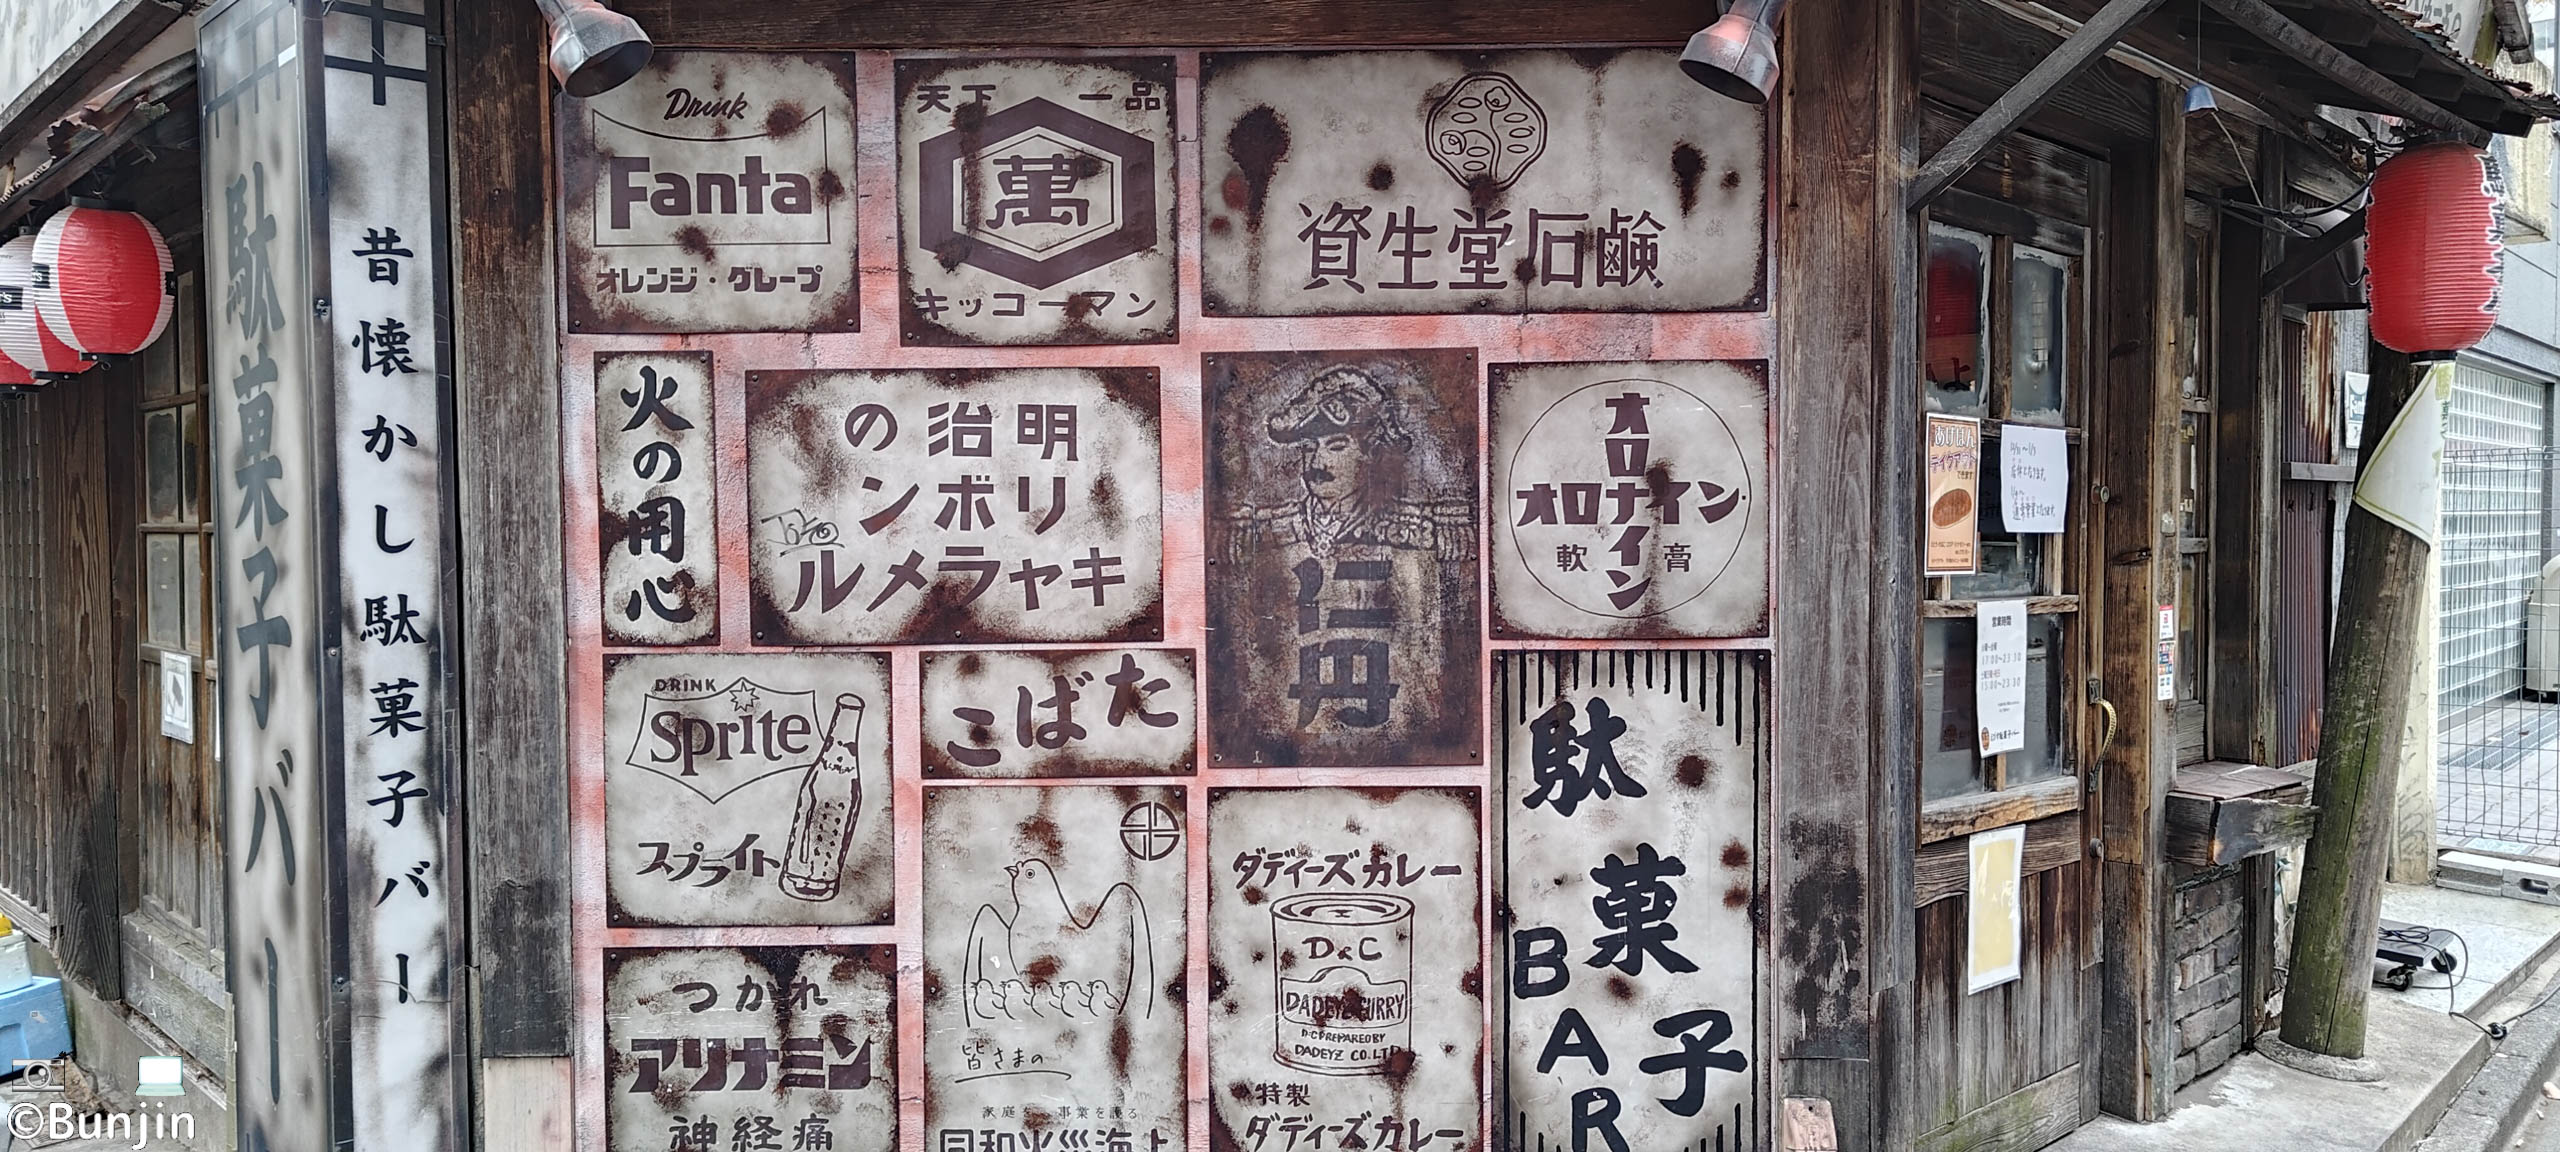 駄菓子バー
昔懐かし駄菓子バー
Drink
Fanta
オレンジ・グレープ
天下一品
萬
キッコーマン
資生堂石鹸
火の用心
の治明
ンボリ
ルメラャキ
仁丹
オロナイン
オロナイン
軟膏
DRINK
Sprite
スプライト
こばた
駄菓子
BAR
つかれ
アリナミン
神経痛
皆さまの
家庭を 事業を護る
同和火災海上
ダディーズカレー
D&C
DADEYZ CURRY
D&C PREPARED BY
DADEYZ CO.LTD
特製
ダディーズカレー
あげぱん
テイクアウト
できます
営業時間
17:00～23:30
15:00～23:30
©Bunjin